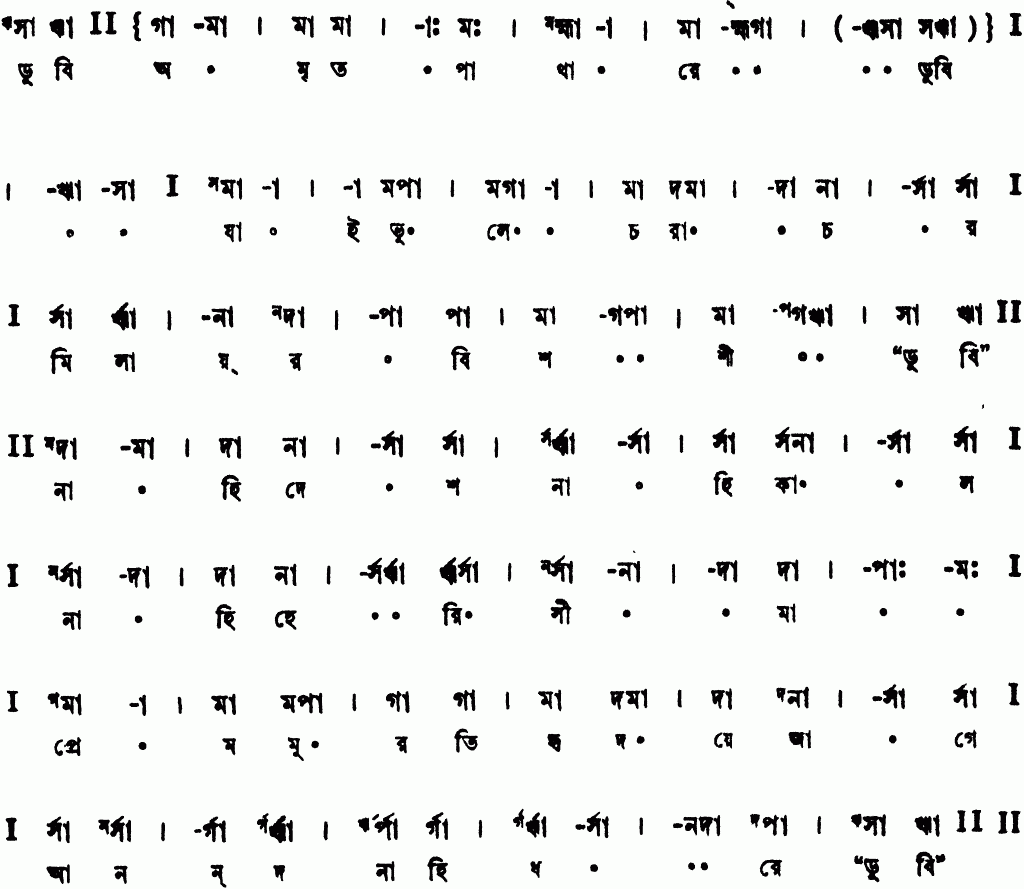 ঋসা ঋা II {গা -মা । মা মা । -াঃ মঃ । মহ্মা -া । মা -হ্মগা । (-ঋসা সঋা)} I
ডু বি অ • মৃ ত • পা থা • রে •• •• ডুবি
। -ঋা -সা I সমা -া । -া মপা । মগা -া । মা দমা । -দা না । -র্সা র্সা I
• • যা • ই ভূ• লে• • চ রা• • চ • র
I র্সা র্ঋা । -না নদা । -পা পা । মা -গপা । মা -পগঋা । সা ঋা II
মি লা য়্ র • বি শ •• শী •• “ডু বি”
II মদা -মা । দা না । -র্সা র্সা । র্সর্ঋা -র্সা । র্সা র্সনা । -র্সা র্সা I
না • হি দে • শ না • হি কা• • ল
I নর্সা -দা । দা না । -র্সর্ঋা র্ঋর্সা । নর্সা -না । -দা দা । -পাঃ -মঃ I
না • হি হে •• রি• সী • • মা • •
I গমা -া । মা মপা । গা গা । মা দমা । দা দনা । -র্সা র্সা I
প্রে • ম মূ• র তি হৃ দ• য়ে জা • গে
I র্সা নর্সা । -র্গা র্গর্ঋা । র্ঋর্পা র্গা । র্গর্ঋা -র্সা । -নদা দপা । ঋসা ঋা II II
আ ন ন্ দ না হি ধ • •• রে “ডু বি”